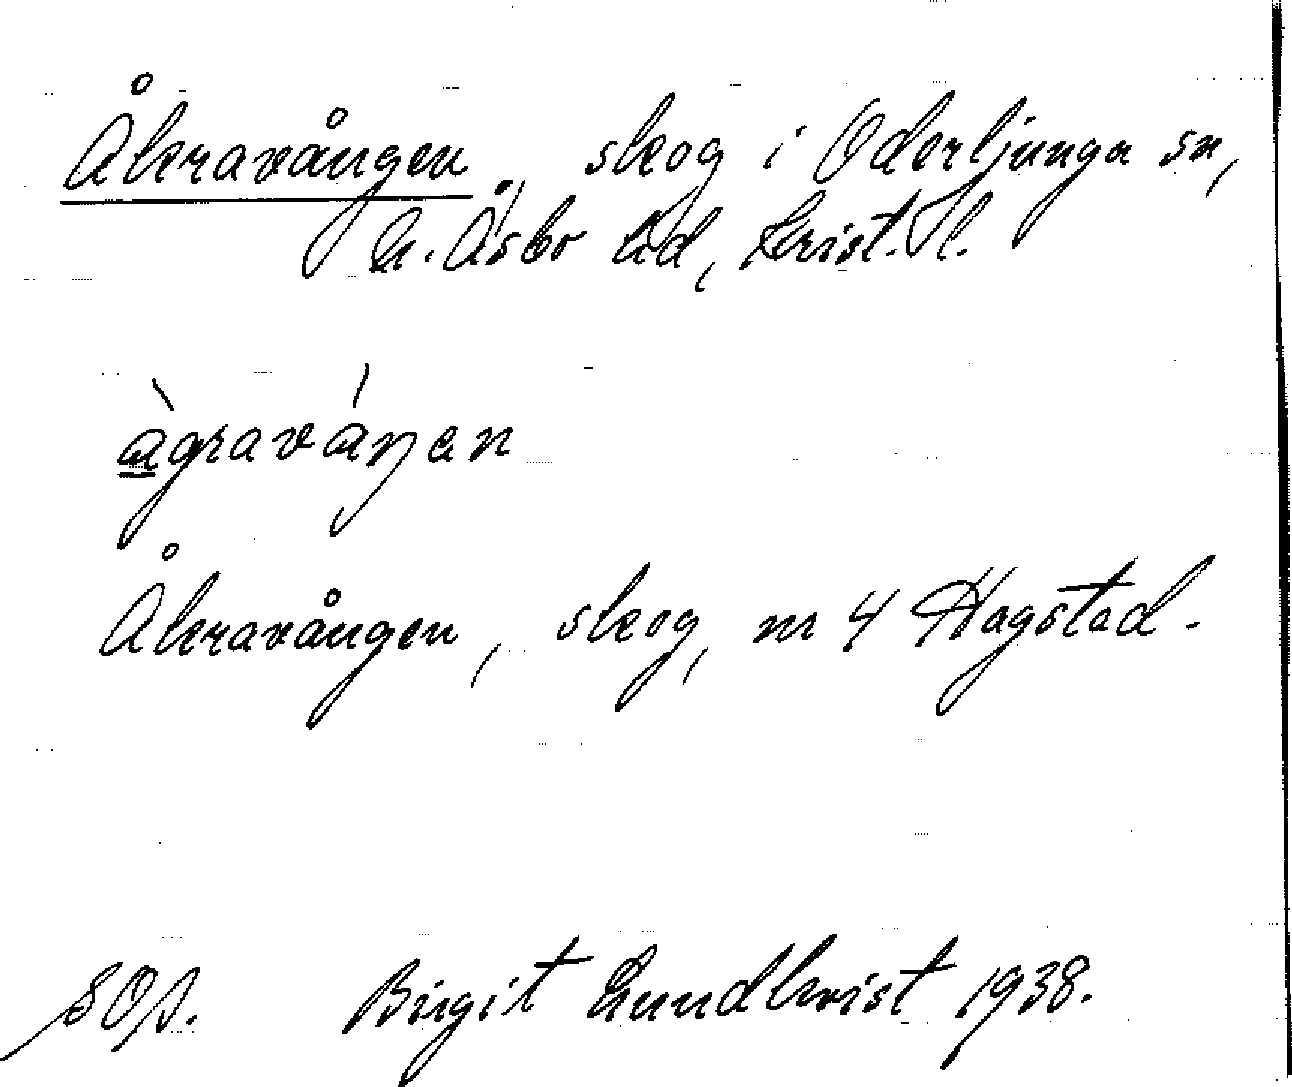 Åkravången, skog i Oderljunga sn,
N. Åsbo hd, Krist. l.
àgraváŋen
Åkravången, skog, m 4 Hagstad.
SOp. Birgit Lundkvist 1938.